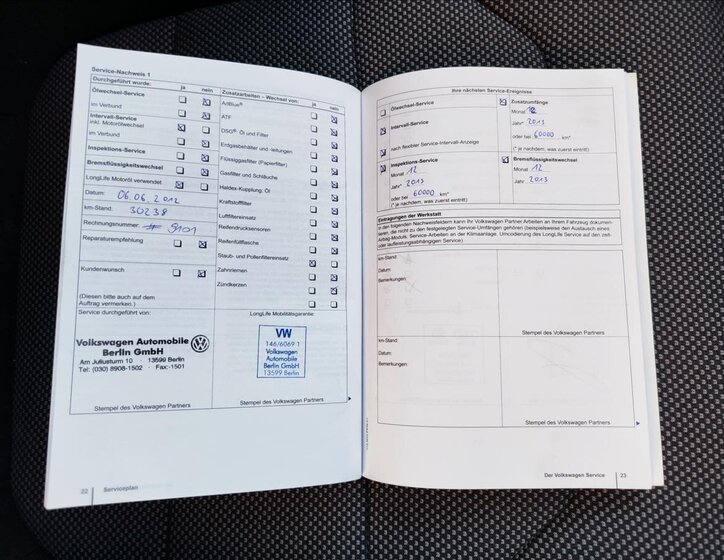 Service-Nachweis 1
Durchgeführt wurde: ja nein
Ölwechsel-Service
im Verbund
Intervall-Service
inkl. Motorölwechsel
im Verbund
Inspektions-Service
Bremsflüssigkeitswechsel
LongLife Motoröl verwendet
Datum: 06.06.2012
km-Stand: 30238
Rechnungsnummer: # 9101
Reparaturempfehlung
Kundenwunsch
(Diesen bitte auch auf dem
Auftrag vermerken.)
Service durchgeführt von:
Volkswagen Automobile
Berlin GmbH
Am Juliusturm 10 · 13599 Berlin
Tel: (030) 8908-1502 · Fax:-1501
Stempel des Volkswagen Partners
Zusatzarbeiten – Wechsel von: ja nein
AdBlue®
ATF
DSG® Öl und Filter
Erdgasbehälter und -leitungen
Flüssiggasfilter (Papierfilter)
Gasfilter und Schläuche
Haldex-Kupplung, Öl
Kraftstofffilter
Luftfiltereinsatz
Reifendrucksensoren
Reifenfüllflasche
Staub- und Pollenfiltereinsatz
Zahnriemen
Zündkerzen
LongLife Mobilitätsgarantie:
VW
146/6069 1
Volkswagen
Automobile
Berlin GmbH
13599 Berlin
Stempel des Volkswagen Partners
22 Serviceplan
Ihre nächsten Service-Ereignisse
Ölwechsel-Service
Intervall-Service
nach flexibler Service-Intervall-Anzeige
Zusatzumfänge
Monat 12
Jahr* 2013
oder bei 60000 km*
(* je nachdem, was zuerst eintritt)
Inspektions-Service
Monat 12
Jahr* 2013
oder bei 60000 km*
(* je nachdem, was zuerst eintritt)
Bremsflüssigkeitswechsel
Monat 12
Jahr 2013
Eintragungen der Werkstatt
In den folgenden Nachweisfeldern kann Ihr Volkswagen Partner Arbeiten an Ihrem Fahrzeug dokumen-
tieren, die nicht zu den festgelegten Service-Umfängen gehören (beispielsweise den Austausch eines
Airbag-Moduls, Service-Arbeiten an der Klimaanlage, Umcodierung des LongLife Service auf den zeit-
oder laufleistungsabhängigen Service).
km-Stand:
Datum:
Bemerkungen:
Stempel des Volkswagen Partners
km-Stand:
Datum:
Bemerkungen:
Stempel des Volkswagen Partners
Der Volkswagen Service 23